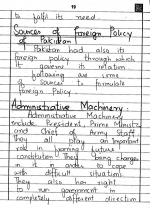 19
to fulfil its need.
Sources of Foreign Policy
of Pakistan
Pakistan had also its
foreign policy through which
it govern its relation.
Following are some
of sources to formulate
foreign Policy.
Administrative Machinery:
Administrative Machinery
include President, Prime Minister
and Chief of Army Staff.
They all play an Important
role in forming Future
constitution. They bring changes
in it in order to cope
with difficult situation.
They also has right
to run government in
completely different direction